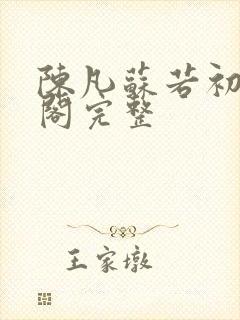 陳凡蘇若初
閣完整
王家墩